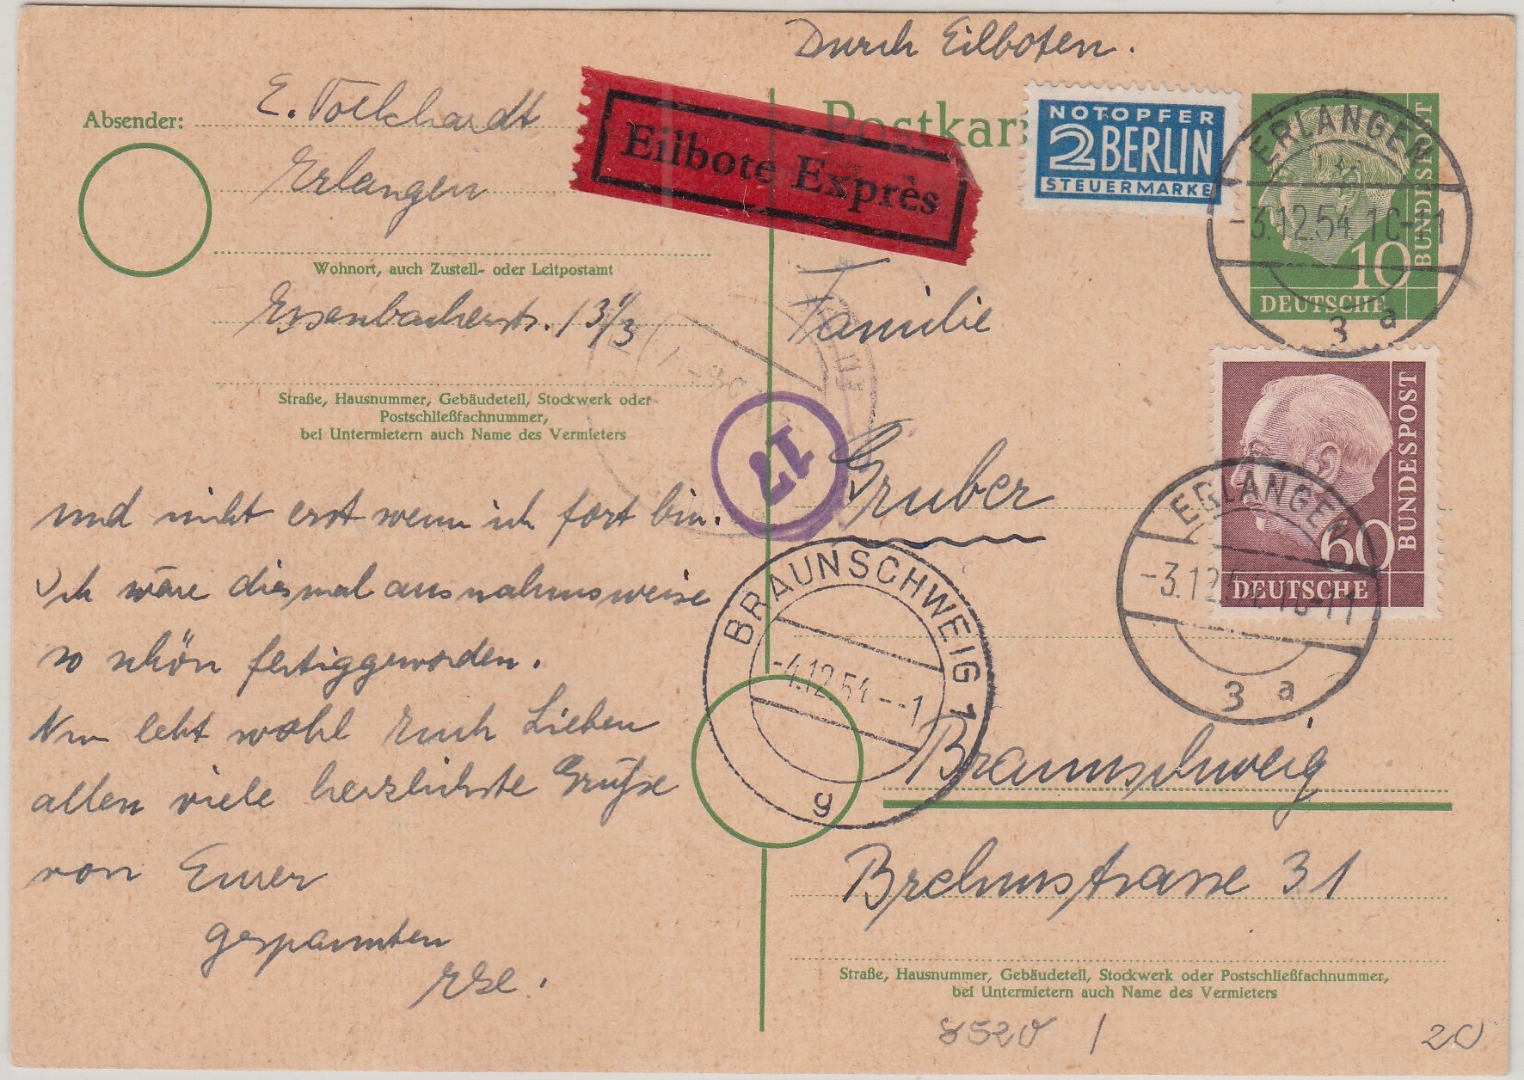 Durch Eilboten.
Absender: E. Volkhardt
Erlangen
Wohnort, auch Zustell- oder Leitpostamt
Essenbacherstr. 13 1/3
Straße, Hausnummer, Gebäudeteil, Stockwerk oder
Postschließfachnummer,
bei Untermietern auch Name des Vermieters
und nicht erst wenn ich fort bin.
Ich wäre diesmal ausnahmsweise
so schön fertiggeworden.
Nun lebt wohl Euch Lieben
allen viele herzlichste Grüße
von Eurer
gespannten
Eilbote Exprès
Postkar
NOTOPFER
2 BERLIN
STEUERMARKE
BUNDESPOST
10
DEUTSCHE
ERLANGEN
-3.12.54.10-11
3 a
BUNDESPOST
60
DEUTSCHE
ERLANGEN
-3.12.54.10-11
3 a
17
BRAUNSCHWEIG 1
-4.12.54--1
g
Familie
Gruber
Braunschweig
Brehmstrasse 31
Straße, Hausnummer, Gebäudeteil, Stockwerk oder Postschließfachnummer,
bei Untermietern auch Name des Vermieters
8520 /
20